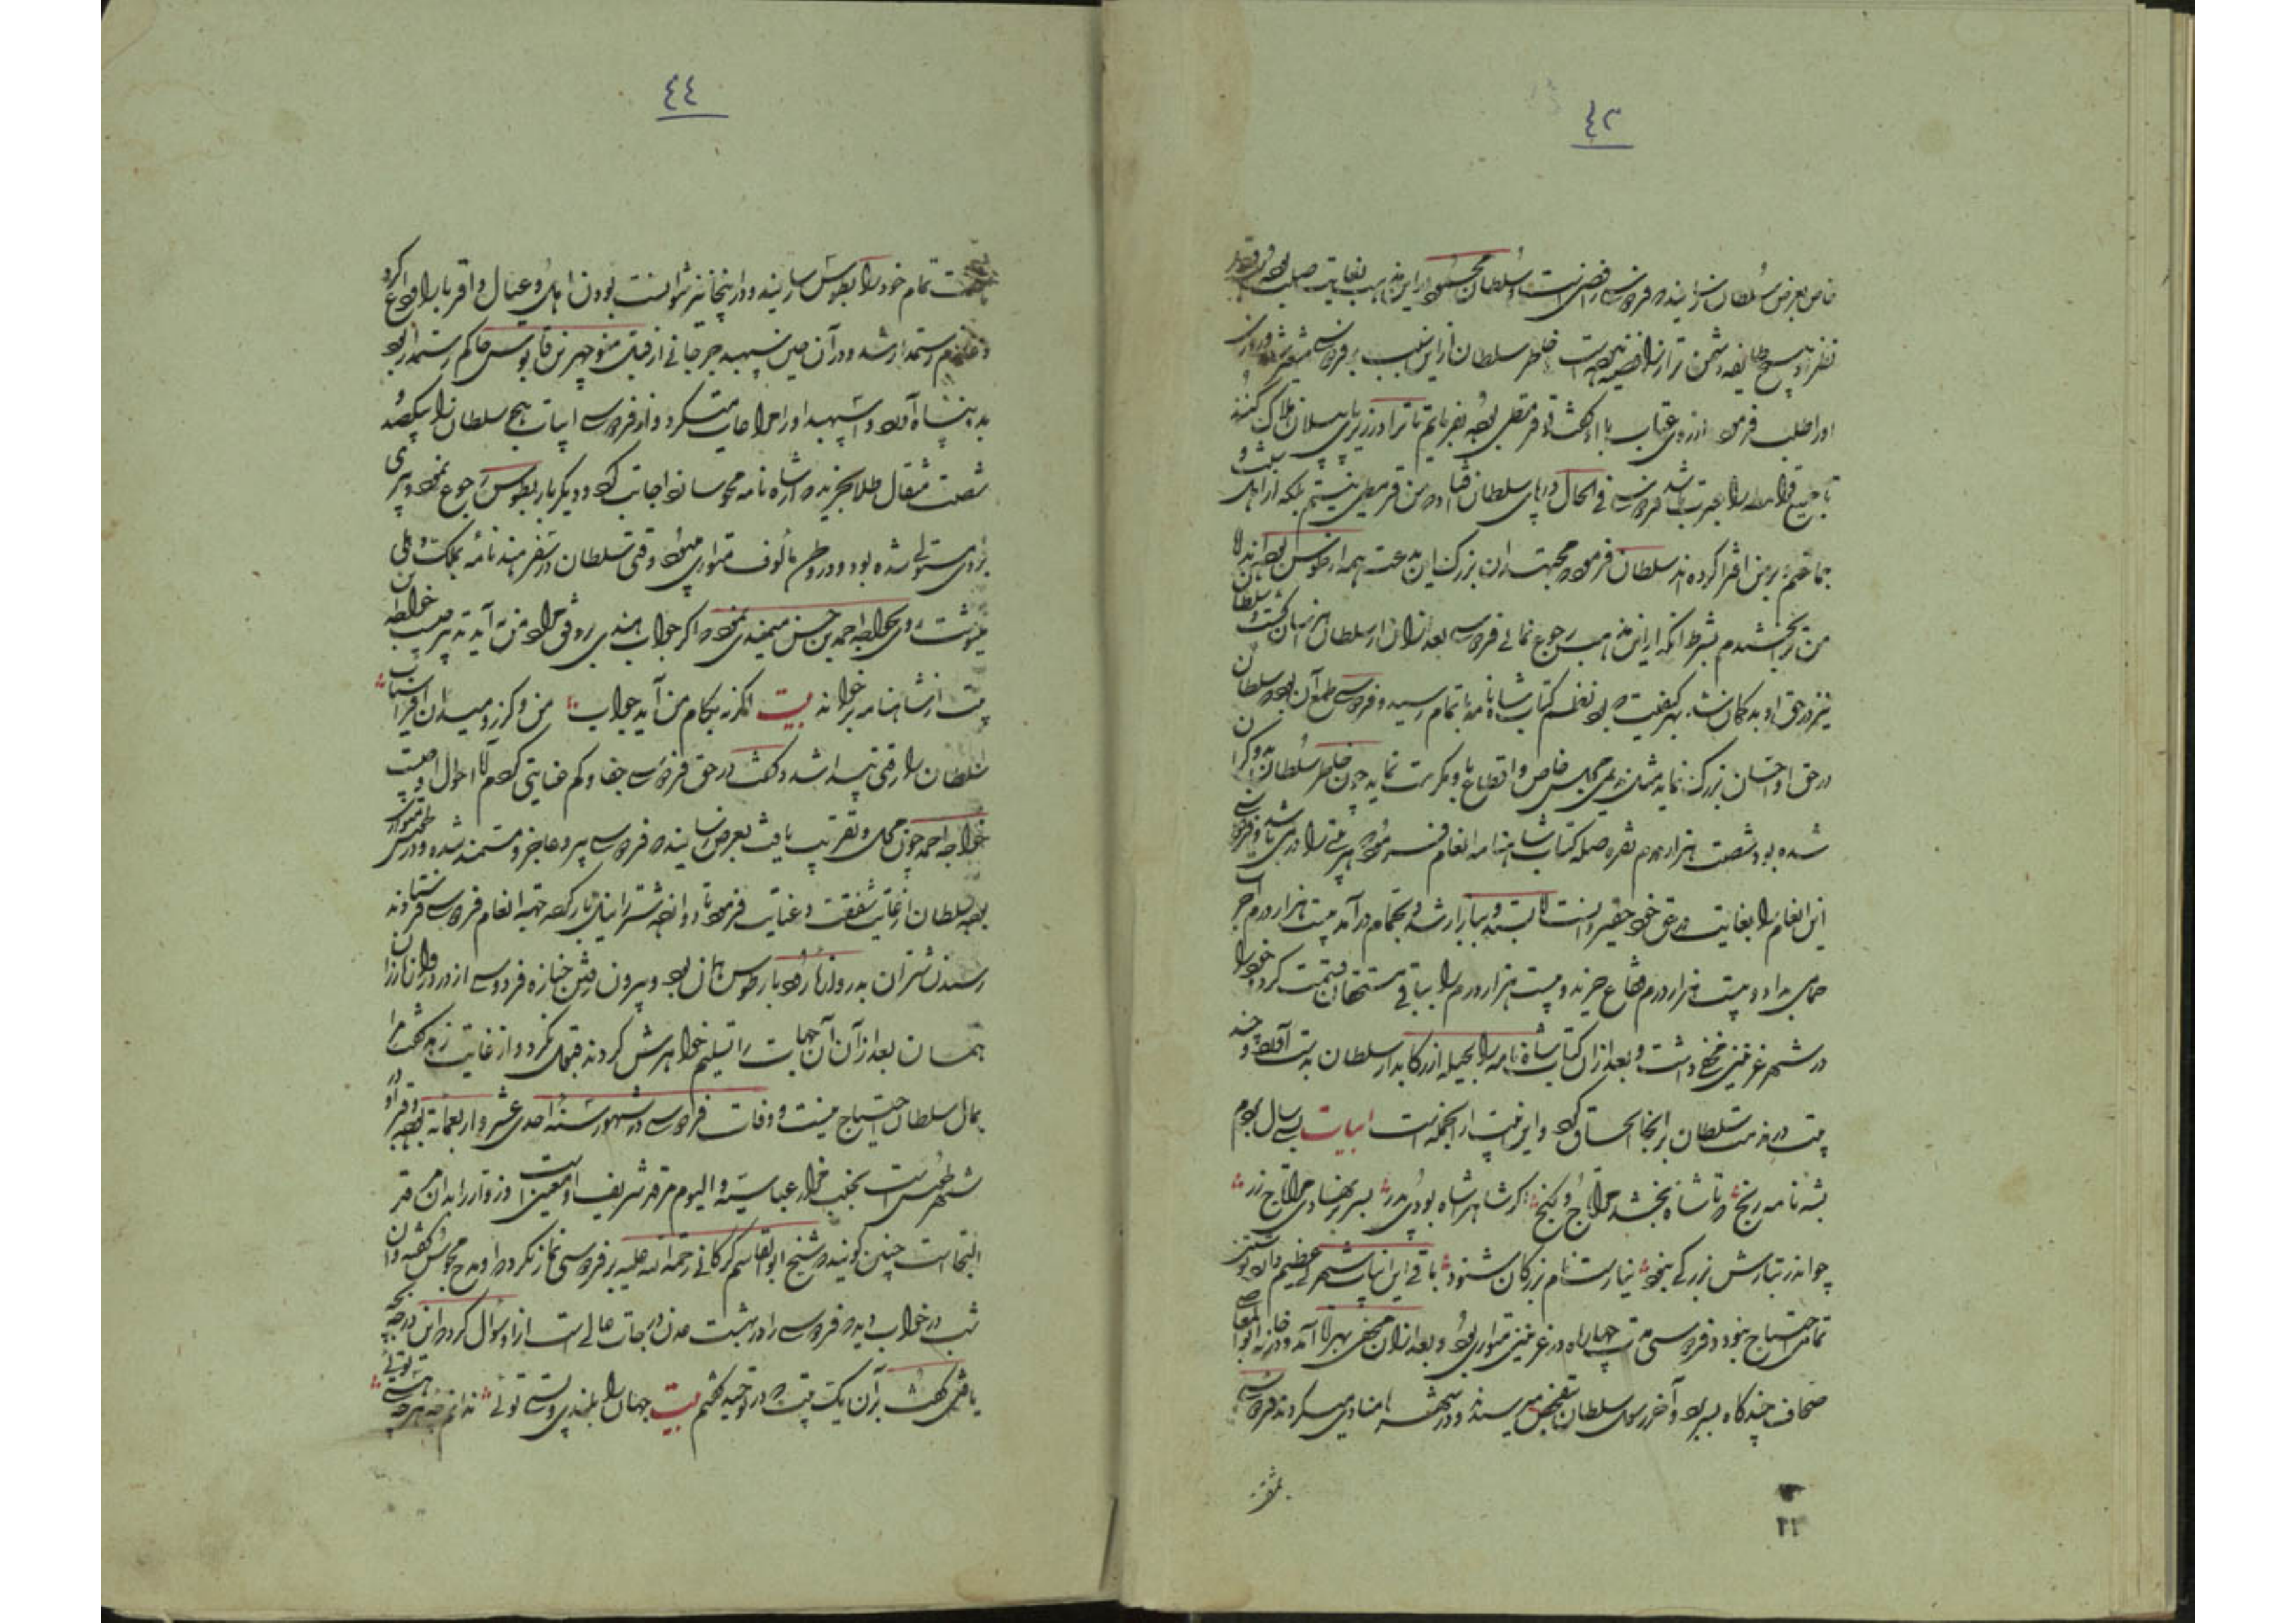 ٤٣
خاص بعرض سلطان رسانیدند که فردوسی رافضی است و سلطان محمود در این مذهب بغایت صلب بود
نظر او هیچ طایفه دشمن تر از رافضیه نبود خاطر سلطان از این سبب بر فردوسی متغیر شد روزی
او را طلب فرمود از روی عتاب با او گفت تو قرمطی بوده بفرمایم تا ترا در زیر پای پیلان هلاک کنند
تا جمیع قرامطه را عبرت باشد فردوسی فی الحال در پای سلطان افتاد که من قرمطی نیستم بلکه از اهل سنت و
جماعتم و بر من افترا کرده اند سلطان فرمود که مجتهدان بزرگ این بدعت همه از طوس بوده اند اما
من ترا بخشیدم بشرط آنکه از این مذهب رجوع نمائی فردوسی بعد از آن از سلطان هراسان گشت و سلطان
نیز در حق او بدگمان شد بهر کیفیت که بود نظم کتاب شاهنامه باتمام رسید و فردوسی طمع آن بود که سلطان
در حق او احسان بزرگ نماید مثل ندیمی مجلس خاص و اقطاع و مکرمت نماید چون خاطر سلطان بدو گران
شده بود شصت هزار درم نقره صله کتاب شاهنامه انعام فرمود که هر بیتی را درمی باشد و فردوسی
این انعام را بغایت در حق خود حقیر دانست لا بستد و ببازار شد و بحمام درآمد بیست هزار درم اجرت
حمامی بداد و بیست هزار درم فقاع خرید و بیست هزار درم را بباقی مستحقان قسمت کرد و خود را
در شهر غزنین مخفی داشت و بعد از آن کتاب شاه نامه را بحیله از کتابدار سلطان بدست آورد و چند
بیت در مذمت سلطان بر آنجا الحاق کرد و این ابیات از آنجمله است ابیات بسی سال بردم
بشه نامه رنج که تا شاه بخشد مرا تاج و گنج اگر شاه را شاه بودی پدر بسر بر نهادی مرا تاج زر
چو اندر تبارش بزرگی نبود نیارست نام بزرگان شنود باقی این ابیات شهرتی عظیم دارد بنوشتن
تمامی احتیاج نبود و فردوسی مدت چهار ماه در غزنین متواری بود و بعد از آن مخفی بهراة آمد و در خانه ابوالمعالی
صحاف چندگاه بسر برد و آخر رسول سلطان بتفحص میرسیدند و در شهرها منادی میکردند فردوسی
بمشقت
٢٢
٤٤
مشقت تمام خود را بطوس رسانید و در اینجا نیز نتوانست بودن اهل و عیال و اقربا را وداع کرد
و عازم رستمدار شد و در آن حین سپهبد جرجانی از قبل منوچهر بن قابوس حاکم رستمدار بود
بدو پناه آورد و اسپهبد او را مراعات میکرد و از فردوسی ابیات هجو سلطان را بیکصد و
شصت مثقال طلا بخرید که از شاه نامه محو ساز اجابت کرد و دیگر بار بطوس رجوع نمود و پیری
بر وی مستولی شده بود و در وطن مألوف متواری میبود وقتی سلطان در سفر هند نامه بملک دهلی
مینوشت روی بخواجه احمد بن حسن میمندی نمود که اگر جواب هندی بر وفق مراد من نیاید تدبیر چیست خواجه این
بیت از شاهنامه بر خواند بیت اگر نه بکام من آید جواب من و گرز و میدان افراسیاب
سلطان را رقتی پیدا شد و گفت در حق فردوسی جفا و کم عنایتی کردم آیا احوال او چیست
خواجه احمد چون محل و تقریب یافت بعرض رسانید که فردوسی پیر و عاجز و مستمند شده و در طوس متواری
بود سلطان از غایت شفقت و عنایت فرمود تا دوازده شتر را نیل بار کرده جهة انعام فردوسی فرستادند
رسیدن شتران به رودبار طوس همان بود و بیرون رفتن جنازه فردوسی از دروازه رزان
همان بعد از آن آن جهات را تسلیم خواهرش کردند قبول نکرد و از غایت زهد گفت مرا
بمال سلطان احتیاج نیست و وفات فردوسی در شهور سنة احدی عشر و اربعمائه بود و قبر او در
شهر طوس است بجنب مزار عباسیه و الیوم مرقد شریف او معین است و زوار را بدان مرقد
التجاست چنین گویند که شیخ ابوالقاسم گرگانی رحمة الله علیه بر فردوسی نماز نکرد که او مدح مجوس گفته و آن
شب در خواب دید که فردوسی را در بهشت عدن درجات عالی است از او سؤال کرد که این درجه بچه
یافتی گفت بدان یک بیت که در توحید گفتم بیت جهان را بلندی و پستی توئی ندانم چه هرچه هستی توئی